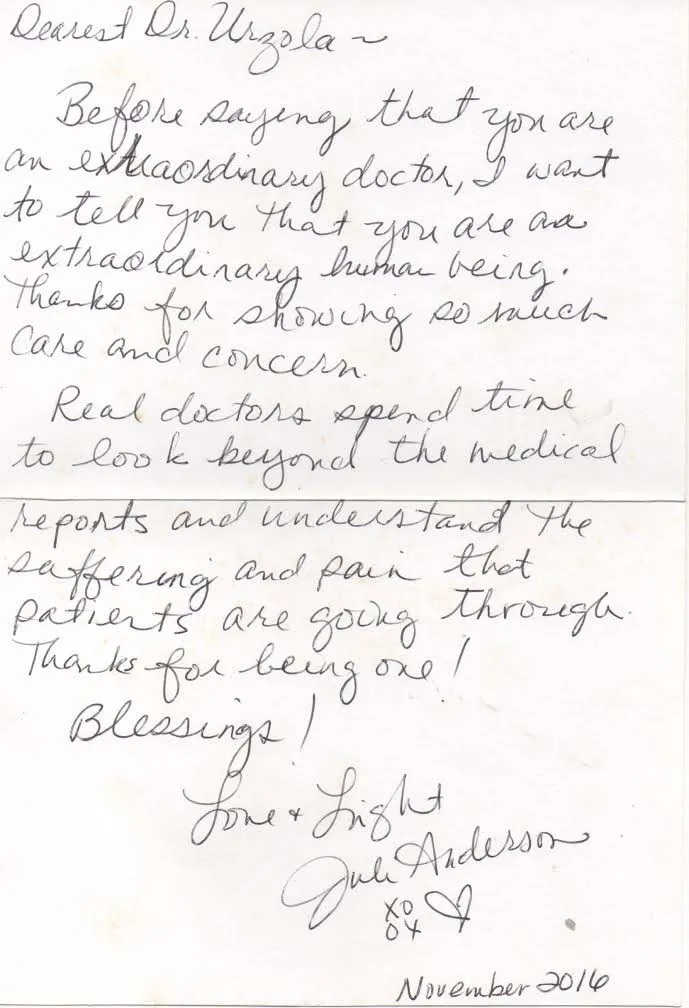 Dearest Dr. Urzola ~
Before saying that you are
an extraordinary doctor, I want
to tell you that you are an
extraordinary human being.
Thanks for showing so much
care and concern.
Real doctors spend time
to look beyond the medical
reports and understand the
suffering and pain that
patients are going through.
Thanks for being one!
Blessings!
Love + Light
Juli Anderson
XO
OX
November 2016